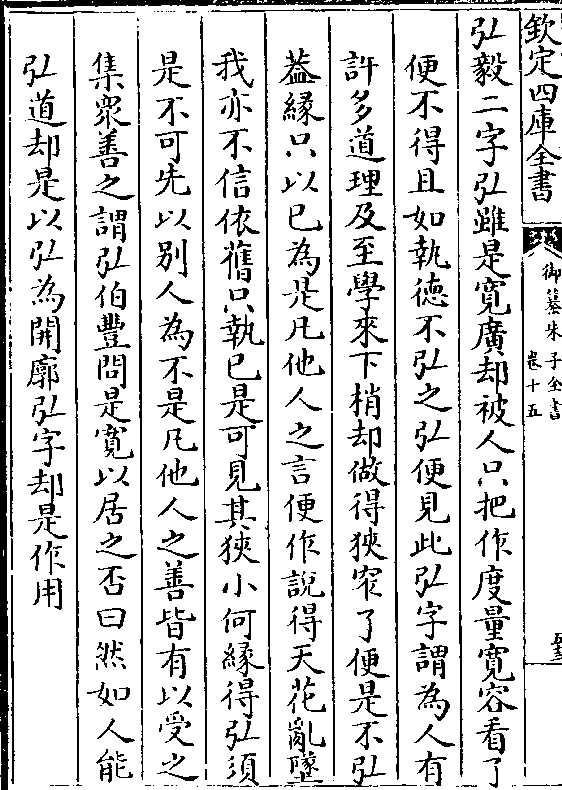 欽定四庫全書
御纂朱子全書
卷十五
弘毅二字弘雖是寛廣却被人只把作度量寛容看了
便不得且如執徳不弘之弘便見此弘字謂為人有
許多道理及至學來下梢却做得狹窄了便是不弘
葢緣只以已為是凡他人之言便作說得天花亂墜
我亦不信依舊只執已是可見其狹小何緣得弘須
是不可先以别人為不是凡他人之善皆有以受之
集衆善之謂弘伯豐問是寛以居之否曰然如人能
弘道却是以弘為開廓弘字却是作用